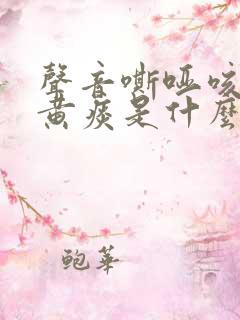 聲音嘶啞咳
黄痰是什麽
鲍華